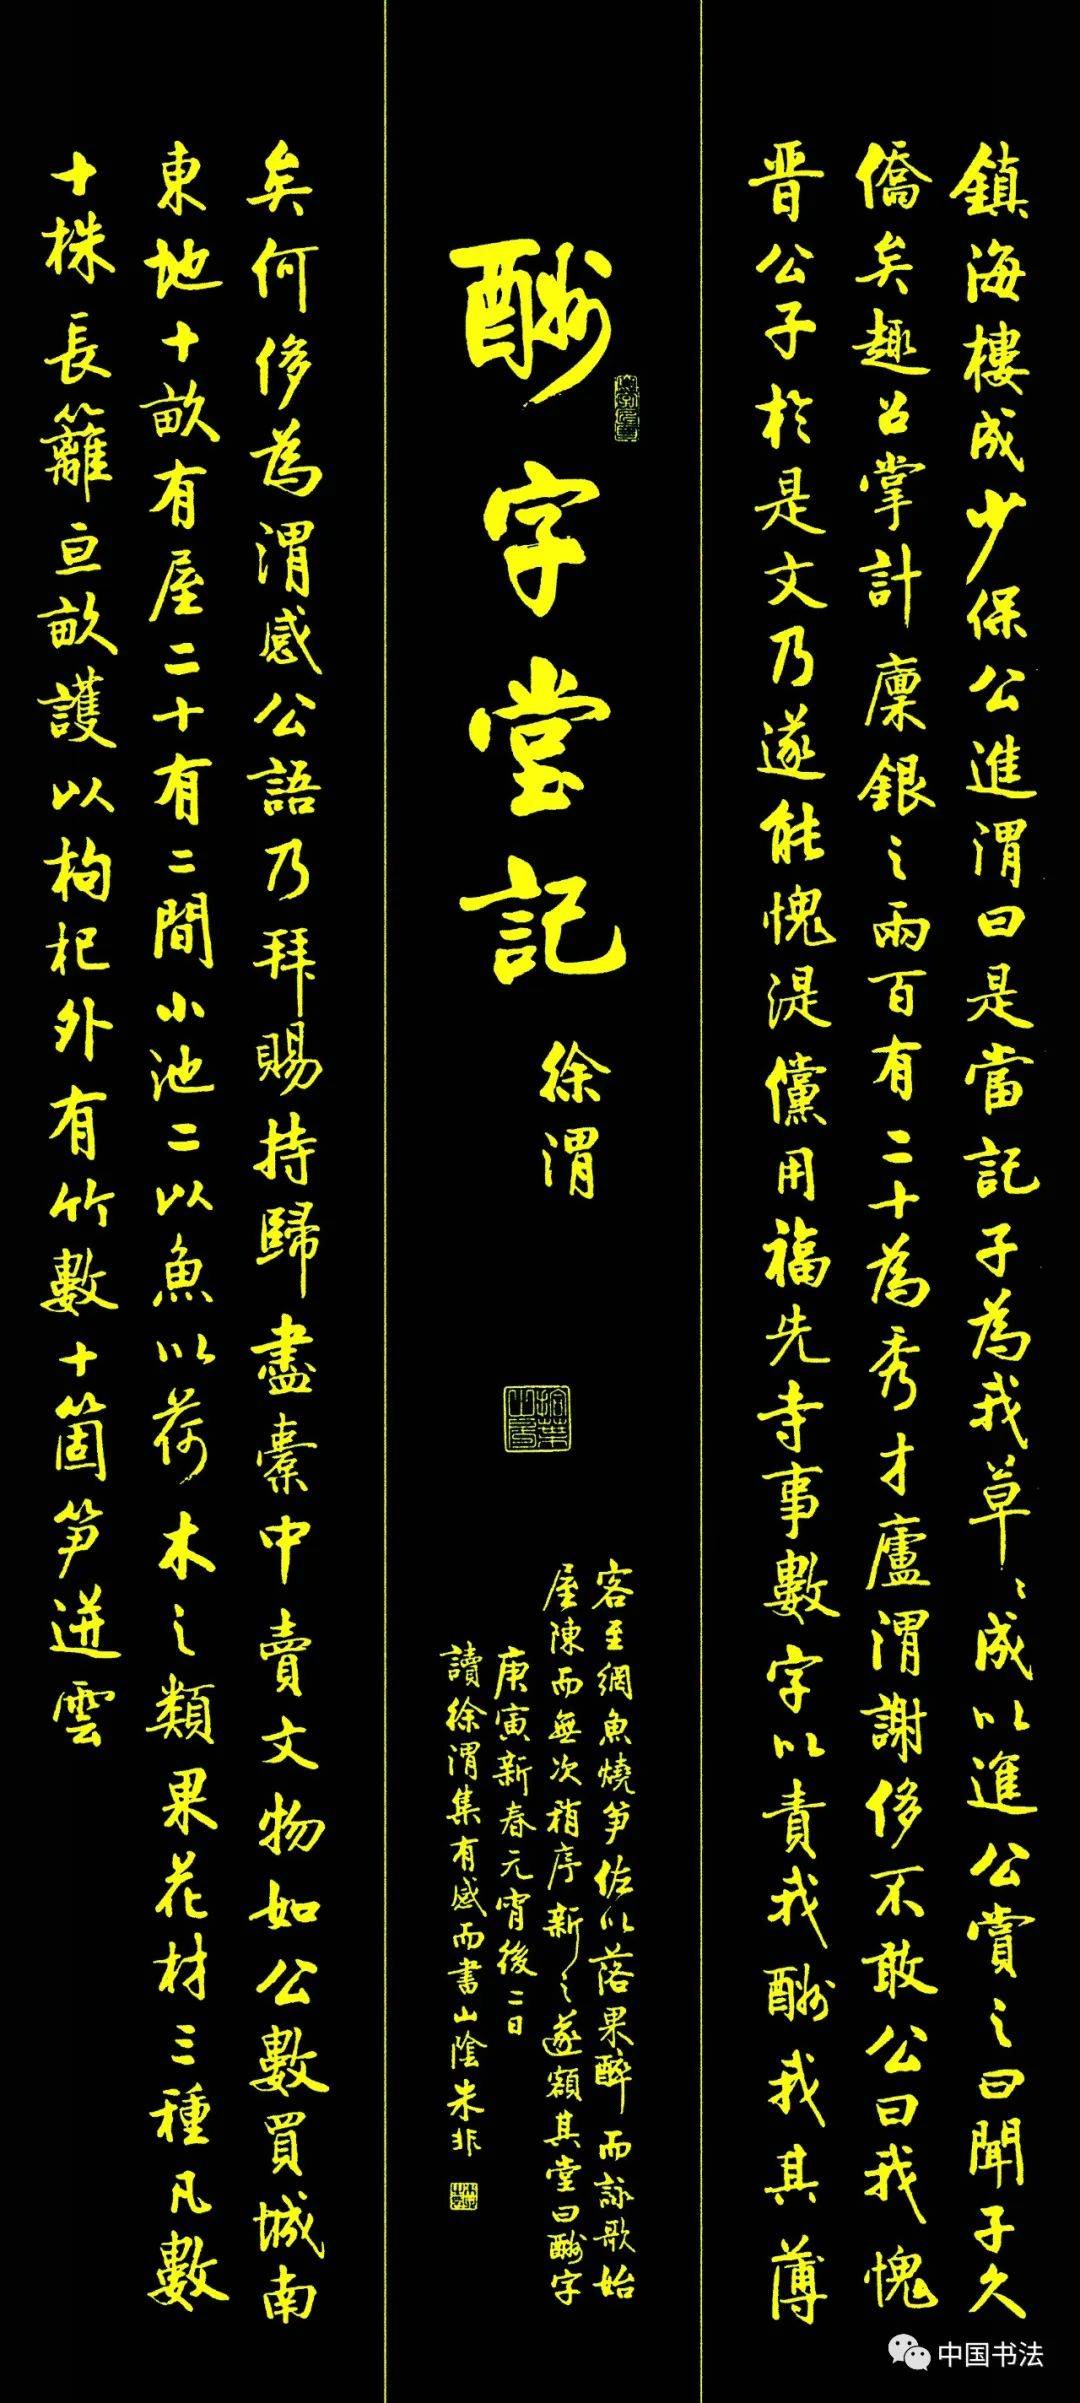 酬字堂記
徐渭
鎮海樓成少保公進渭曰是當記子為我草〻成以進公賞之曰聞子久
僑矣趣召掌計廩銀之兩百有二十為秀才廬渭謝侈不敢公曰我愧
晋公子於是文乃遂能愧湜儻用福先寺事數字以責我酬我其薄
矣何侈為渭感公語乃拜賜持歸盡橐中賣文物如公數買城南
東地十畝有屋二十有二間小池二以魚以荷木之類果花材三種凡數
十株長籬亘畝護以枸杞外有竹數十箇笋迸雲
客至網魚燒笋佐以落果醉而詠歌始
屋陳而無次稍序新之遂額其堂曰酬字
庚寅新春元宵後二日
讀徐渭集有感而書山陰朱非
中国书法